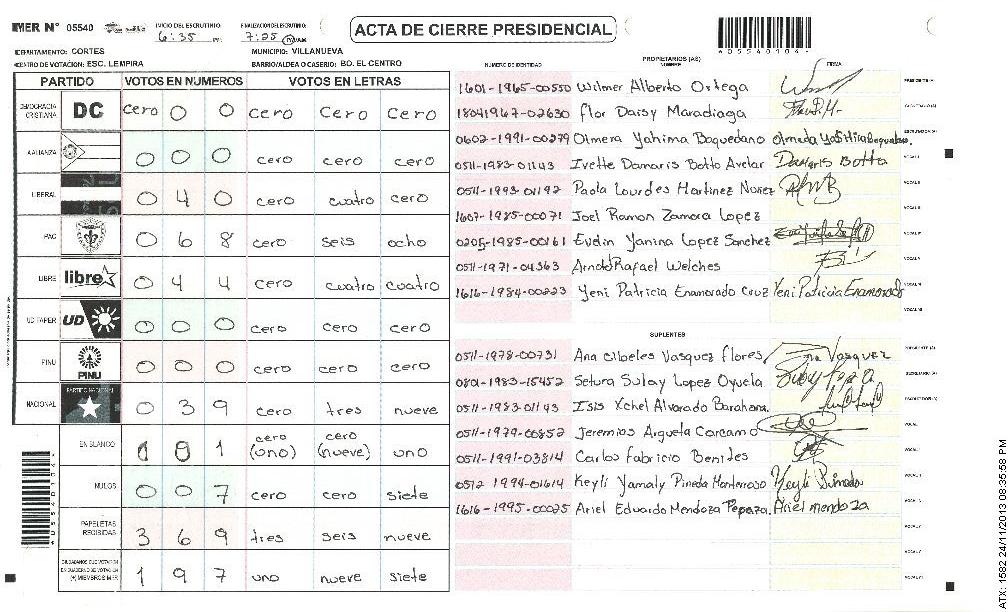 MER N° 05540 INICIO DEL ESCRUTINIO: 6:35 PM FINALIZACION ESCRUTINIO: 7:25 PM
ACTA DE CIERRE PRESIDENCIAL
A05540104
DEPARTAMENTO: CORTES MUNICIPIO: VILLANUEVA
CENTRO DE VOTACION: ESC. LEMPIRA BARRIO/ALDEA O CASERIO: BO. EL CENTRO
PARTIDO VOTOS EN NUMEROS VOTOS EN LETRAS
DEMOCRACIA CRISTIANA DC cero 0 0 cero cero cero
AALIANZA 0 0 0 cero cero cero
LIBERAL 0 4 0 cero cuatro cero
PAC 0 6 8 cero seis ocho
LIBRE libre 0 4 4 cero cuatro cuatro
UD FAPER UD 0 0 0 cero cero cero
PINU PINU 0 0 0 cero cero cero
NACIONAL PARTIDO NACIONAL 0 3 9 cero tres nueve
EN BLANCO 1 cero (uno) cero (nueve) uno
NULOS 0 0 7 cero cero siete
PAPELETAS RECIBIDAS 3 6 9 tres seis nueve
CIUDADANOS QUE VOTARON EN CUADERNO DE VOTACION (+) MIEMBROS MER 1 9 7 uno nueve siete
A05540104
PROPIETARIOS (AS)
NUMERO DE IDENTIDAD NOMBRE FIRMA
1601-1965-00550 Wilmer Alberto Ortega PRESIDENTE (A)
18041967-02630 flor Daisy Maradiaga SECRETARIO (A)
0602-1991-00279 Olmera Yahima Baquedano ESCRUTADOR (A)
0511-1983-01143 Ivette Damaris Botto Avelar Damaris Botto VOCAL I
0511-1993-01192 Paola Lourdes Martinez Nuñez
1607-1985-00071 Joel Ramon Zamora Lopez
0205-1985-00161 Evelin Yanina Lopez Sanchez
0511-1971-04363 Arnold Rafael Welches
1616-1984-00223 Yeni Patricia Enamorado Cruz Yeni Patricia Enamorado
SUPLENTES
0511-1978-00731 Ana cibeles Vasquez flores Ana Vasquez PRESIDENTE (A)
0801-1983-15452 Setura Sulay Lopez Oyuela SECRETARIO (A)
0511-1983-01143 Isis Xchel Alvarado Barahona ESCRUTADOR (A)
0511-1979-00852 Jeremias Argueta Carcamo VOCAL
0511-1991-03814 Carlos Fabricio Benides
0512 1994-01614 Keyli Yamaly Pineda Monterroso Keyli Pineda
1616-1995-00025 Ariel Eduardo Mendoza Ariel mendoza
ATX: 1582 24/11/2013 08:35:58 PM